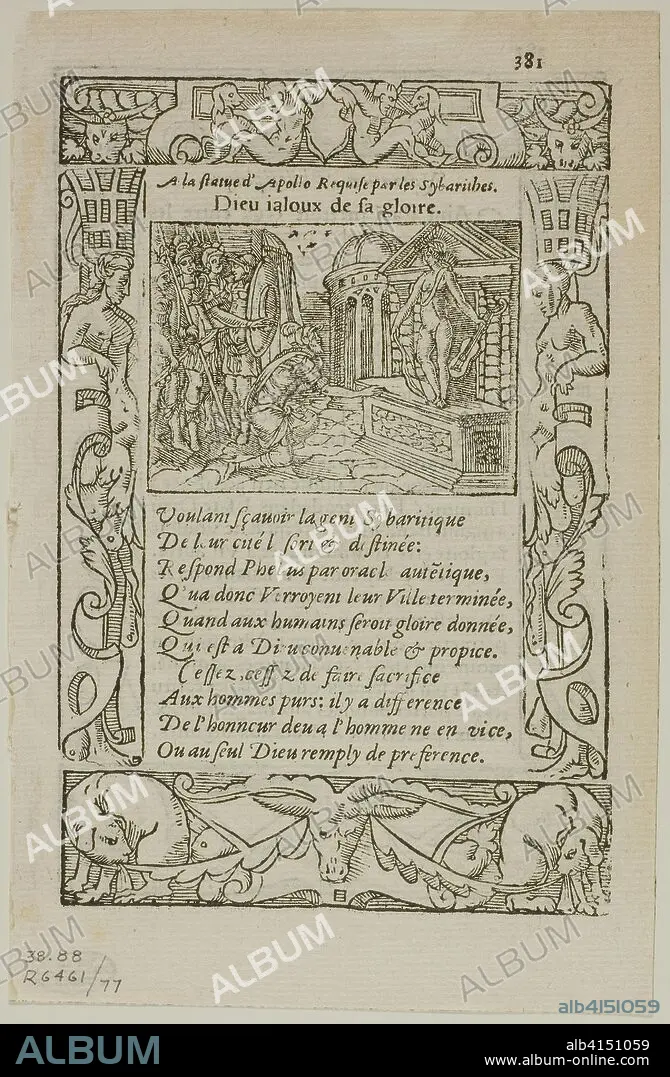 381
A la statue d'Apollo Requise par les Sybarithes.
Dieu ialoux de sa gloire.
Voulant sçauoir la gent Sybaritique
De leur cité l sort & destinée:
Respond Phebus par oracle autẽtique,
Q'ua donc Verroyent leur Ville terminée,
Quand aux humains seroit gloire donnée,
Qui est a Dieu conuenable & propice.
Cessez, cessez de faire sacrifice
Aux hommes purs: il y a difference
De l'honneur deu a l'homme ne en vice,
Ou au seul Dieu remply de preference.
38.88
R6461/77
alb4151059
ALBUM
alb4151059
www.album-online.com